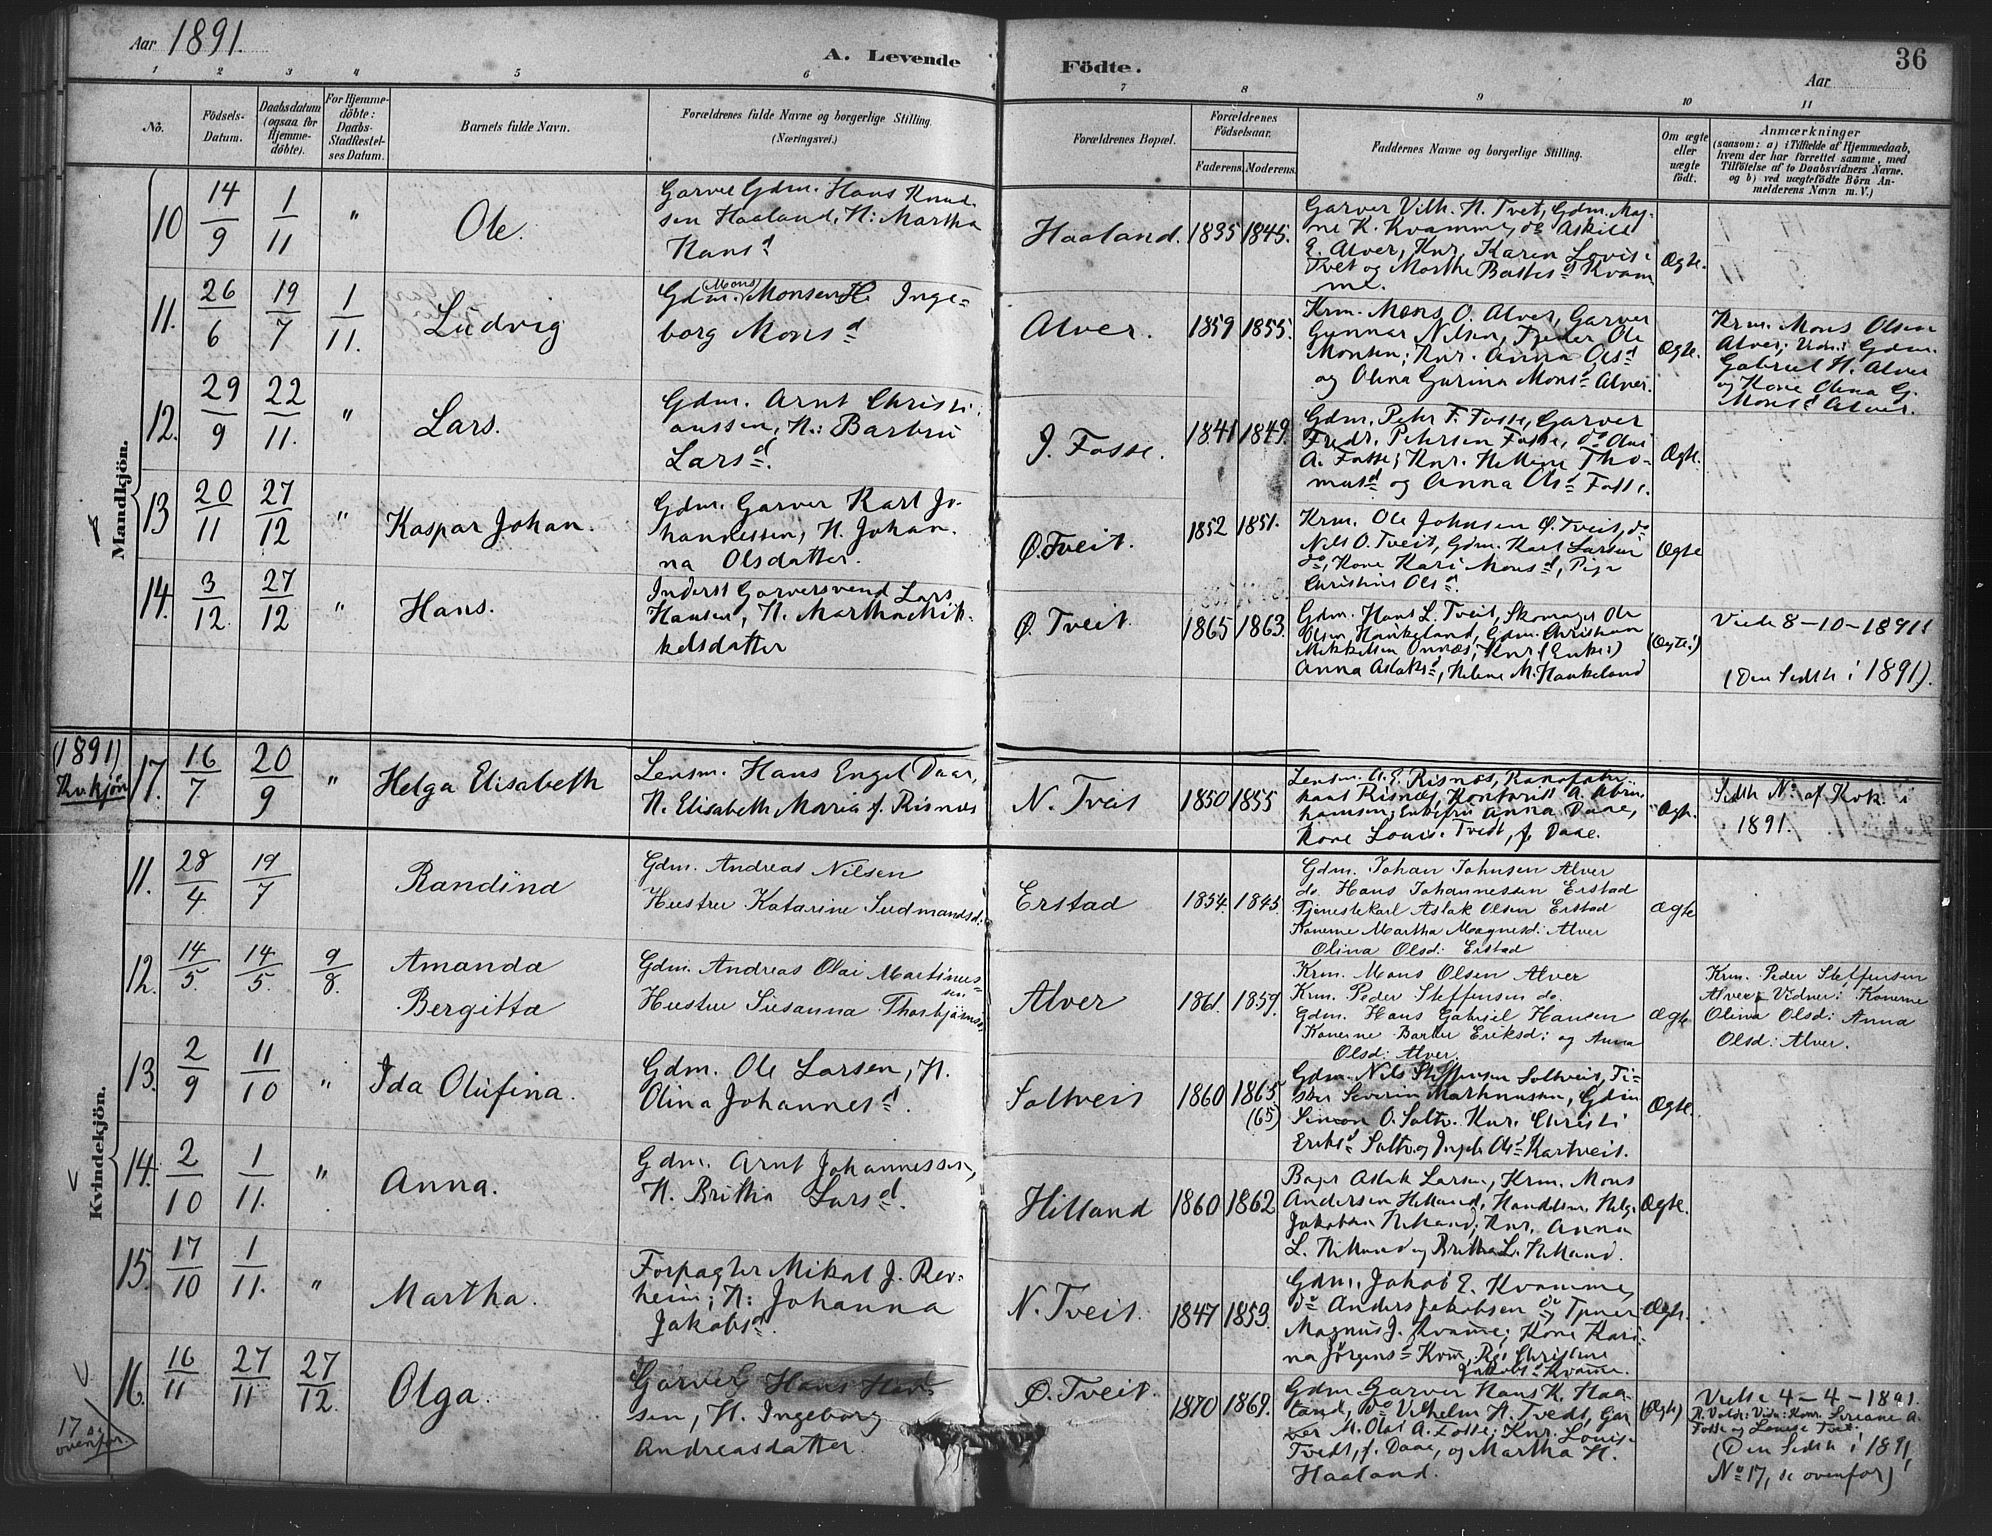 Aar 1891.
A. Levende Födte.
Aar
36
1 2 3 4 5 6 7 8 9 10 11
No.
Födsels-
Datum.
Daabsdatum
(ogsaa for
Hjemme-
döbte).
For Hjemme-
döbte:
Daabs-
Stadfæstel-
ses Datum.
Barnets fulde Navn.
Forældrenes fulde Navne og borgerlige Stilling.
(Næringsvei.)
Forældrenes Bopæl.
Forældrenes
Födselsaar.
Faderens. Moderens.
Faddernes Navne og borgerlige Stilling.
Om ægte
eller
uægte
födt.
Anmærkninger
(saasom: a) i Tilfælde af Hjemmedaab,
hvem der har forrettet samme, med
Tilföielse af to Daabsvidners Navne.
og b) ved uægtefödte Börn An-
melderens Navn m. V.)
Mandkjön.
10 14/9 1/11 " Ole.
Garver Gdm. Hans Knud-
sen Haaland, H: Martha
Hansd
Haaland. 1835 1845.
Garver Vilh. H. Tvet, Gdm. Mag-
ne K. Kvamme, do Askild
E. Alver, Knr. Karen Lovise
Tvet og Marthe Kvam
me.
Ægte.
11. 26/6 19/7 1/11. Ludvig
Gdm. Mons Monsen H. Inge-
borg Monsd
Alver. 1859 1855.
Krm. Mons O. Alver, Garver
Gunnar Nilsen, Ole
Monsen; Knr. Anna Olsd
og Olina Gurina Monsd Alver.
Ægte.
Krm. Mons Olsen
Alver; Vidn: Gdm.
Gabriel H. Alver
og Kone Olina G.
Monsd Alver.
12. 29/9 22/11. " Lars.
Gdm. Arnt Christi-
anssen, H.: Barbru
Larsd.
J. Fosse. 1841 1849.
Gdm. Peter F. Fosse, Garver
Fredr. Petersen Fosse, do Olai
A. Fosse; Knr. Helline Tho-
masd og Anna Olsd Fosse.
Ægte.
13 20/11 27/12 " Kaspar Johan.
Gdm. Garver Karl Jo-
hannessen, H. Johan-
na Olsdatter.
Ø. Tveit. 1852 1851.
Krm. Ole Johnsen Ø. Tveit, do
Nils O. Tveit, Gdm. Karl Larsen
do, Kone Kari Monsd, Pige
Christine Olsd.
Ægte
14. 3/12. 27/12 " Hans.
Inderst Garversvend Lars
Hansen, H. Martha Mik-
kelsdatter
Ø. Tveit. 1865 1863.
Gdm. Hans L. Tveit, Skomager Ole
Olsen Haukeland, Gdm. Christian
Mikkelsen Onnæs; Knr. (Enke:)
Anna Aslaksd, Helene M. Haukeland
(Ægte!)
Viede 8-10-1891!
(Den Sidste i 1891).
(1891)
Kv.kjön
17. 16/7 20/9 " Helga Elisabeth
Lensm. Hans Engel Daae,
H. Elisabeth Maria f. Risnæs
N. Tveit 1850 1855
Lensm. A. E. Risnæs,
Risnæs, Kontorist A. Abra-
hamsen; Enkefru Anna Daae,
Kone Louise Tvedt, f. Daae.
Ægte.
Sidste No af Kvk. i
1891.
Kvindekjön.
11. 28/4. 19/7 Randina
Gdm. Andreas Nilsen
Hustru Katarine Sudmandsd.
Erstad 1854. 1845.
Gdm. Johan Johnsen Alver
do. Hans Johannessen Erstad
Tjenestekarl Aslak Olsen Erstad
Konerne Martha Magnesd: Alver
Olina Olsd: Erstad
Ægte
12. 14/5. 14/5. 9/8. Amanda
Bergitta
Gdm. Andreas Olai Martinus-
sen
Hustru Susanna Thorbjørnsd.
Alver 1861. 1859.
Krm. Mons Olsen Alver
Krm. Peder Steffensen do.
Gdm. Hans Gabriel Hansen
Konerne Barbru Eriksd: og Anna
Olsd: Alver.
Ægte
Krm. Peder Steffensen
Alver; Vidner: Konerne
Olina Olsd: Anna
Olsd: Alver.
13. 2/9 11/10 " Ida Olufina.
Gdm. Ole Larsen, H.
Olina Johannesd.
Soltveit 1860 1865
(65)
Gdm. Nils Steffensen Soltveit, Ti-
Severin Marthinussen, Gdm
Simon O. Soltv. Knr. Christi
Eriksd Soltv. og Ingeb. Olsd Kartveit.
Ægte
14. 2/10 1/11. " Anna.
Gdm. Arnt Johannessen,
H. Brithа Larsd.
Hilland 1860 1862
Aslak Larsen, Krm. Mons
Andersen Hilland, Handelsm. Helge
Jakobsen Hilland; Knr. Anna
L. Hilland og Britha L. Hilland.
Ægte.
15. 17/10 1/11. " Martha.
Forpagter Mikal J. Rev-
heim; H: Johanna
Jakobsd.
N. Tveit. 1847 1853.
Gdm. Jakob E. Kvamme,
do Anders Jakobsen do,
Magnus J. Kvamme; Kone Kari-
na Jørgensd Kvm, Christine
Jakobsd Kvamme.
Ægte.
16. 16/11 27/11 27/12. Olga.
Garver Hans Han-
sen, H. Ingeborg
Andreasdatter.
Ø. Tveit. 1870 1869.
Gdm. Garver Hans K. Haa-
land, do Vilhelm H. Tvedt, Gar
ver M. Olai A. Fosse; Knr. Louise
Tvedt, f. Daae, og Martha H.
Haaland.
(Ægte)
Viede 4-4-1891.
Vidn: Konr. Seriane A.
Fosse og Louise Tveit.
(Den Sidste i 1891,
No 17, se ovenfor)
17 se
ovenfor.